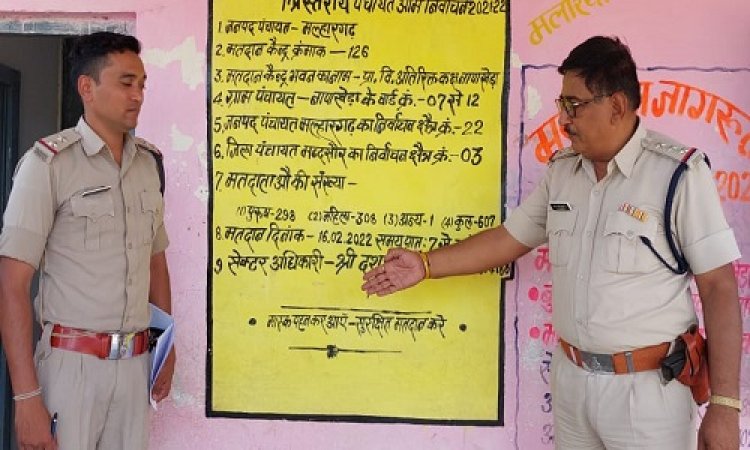 त्रिस्तरीय पंचायत आम निर्वाचन 2021-22
1. जनपद पंचायत - मल्हारगढ़
2. मतदान केन्द्र क्रमांक - 126
3. मतदान केन्द्र भवन का नाम - प्रा. वि. अतिरिक्त कक्ष नापाखेड़ा
4. ग्राम पंचायत - नापाखेड़ा के वार्ड कं. - 07 से 12
5. जनपद पंचायत मल्हारगढ़ का निर्वाचन क्षैत्र कं. - 22
6. जिला पंचायत मन्दसौर का निर्वाचन क्षैत्र क्रं - 03
7. मतदाताओ की संख्या -
(1) पुरूष - 298 (2) महिला - 308 (3) अन्य - 1 (4) कुल - 607
8. मतदान दिनांक - 16.02.2022 समय प्रातः 7 से
9. सेक्टर अधिकारी - श्री
• मास्क पहनकर आये - सुरक्षित मतदान करे •
जागरूक